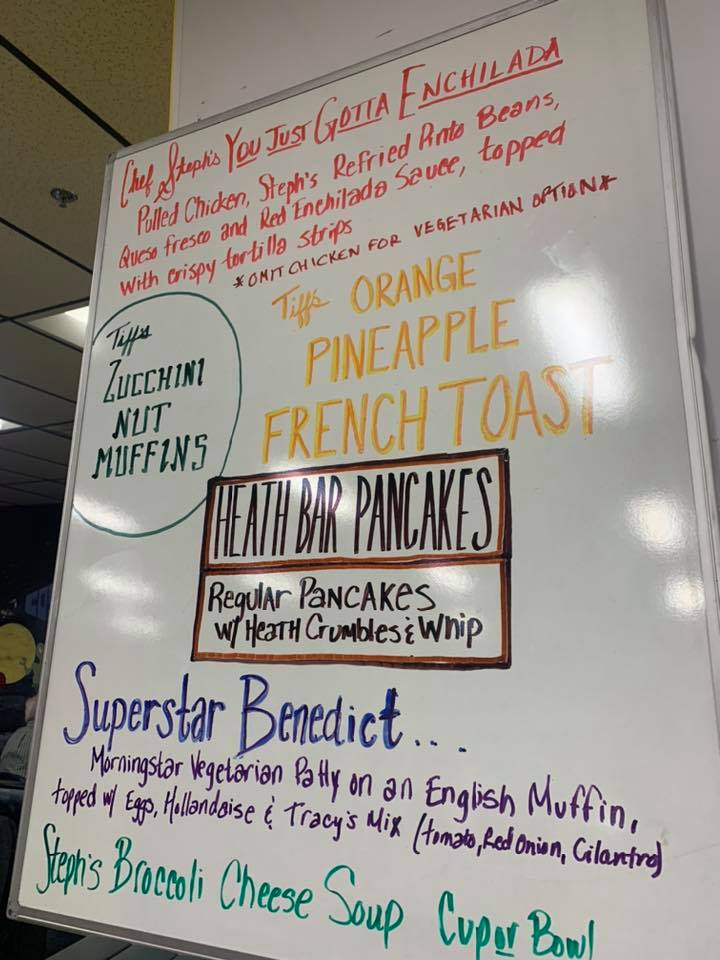 Chef Steph's You Just Gotta Enchilada
Pulled Chicken, Steph's Refried Pinto Beans,
Queso fresco and Red Enchilada Sauce, topped
with crispy tortilla strips
*OMIT CHICKEN FOR VEGETARIAN OPTION*
Tiff's ORANGE
PINEAPPLE
FRENCH TOAST
Tiff's
ZUCCHINI
NUT
MUFFINS
HEATH BAR PANCAKES
Regular PANCAKES
W/ HEATH Crumbles & Whip
Superstar Benedict...
Morningstar Vegetarian Patty on an English Muffin,
topped w/ Eggs, Hollandaise & Tracy's Mix (tomato, Red Onion, Cilantro)
Steph's Broccoli Cheese Soup Cup or Bowl